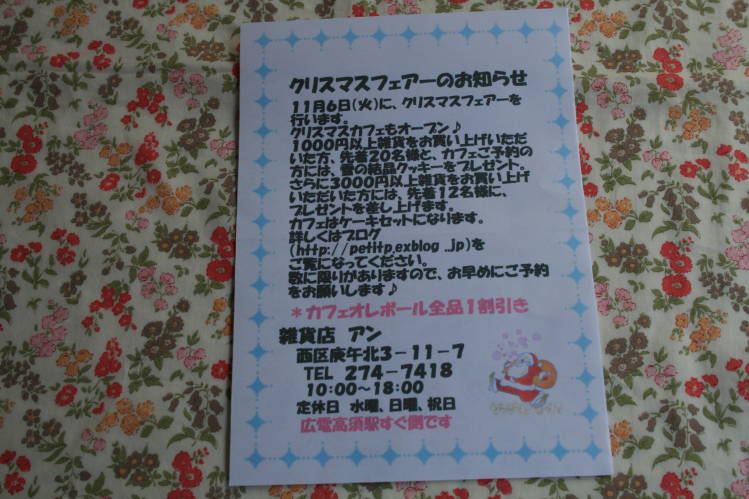 クリスマスフェアーのお知らせ
11月6日(火)に、クリスマスフェアーを
行います。
クリスマスカフェもオープン♪
1000円以上雑貨をお買い上げいただ
いた方、先着20名様と、カフェご予約の
方には、雪の結晶クッキーをプレゼント。
さらに3000円以上雑貨をお買い上げ
いただいた方には、先着12名様に、
プレゼントを差し上げます。
カフェはケーキセットになります。
詳しくはブログ
(http://petitp.exblog.jp)を
ご覧になってください。
数に限りがありますので、お早めにご予約
をお願いします♪
*カフェオレボール全品1割引き
雑貨店 アン
西区庚午北3-11-7
TEL 274-7418
10:00~18:00
定休日 水曜、日曜、祝日
広電高須駅すぐ側です